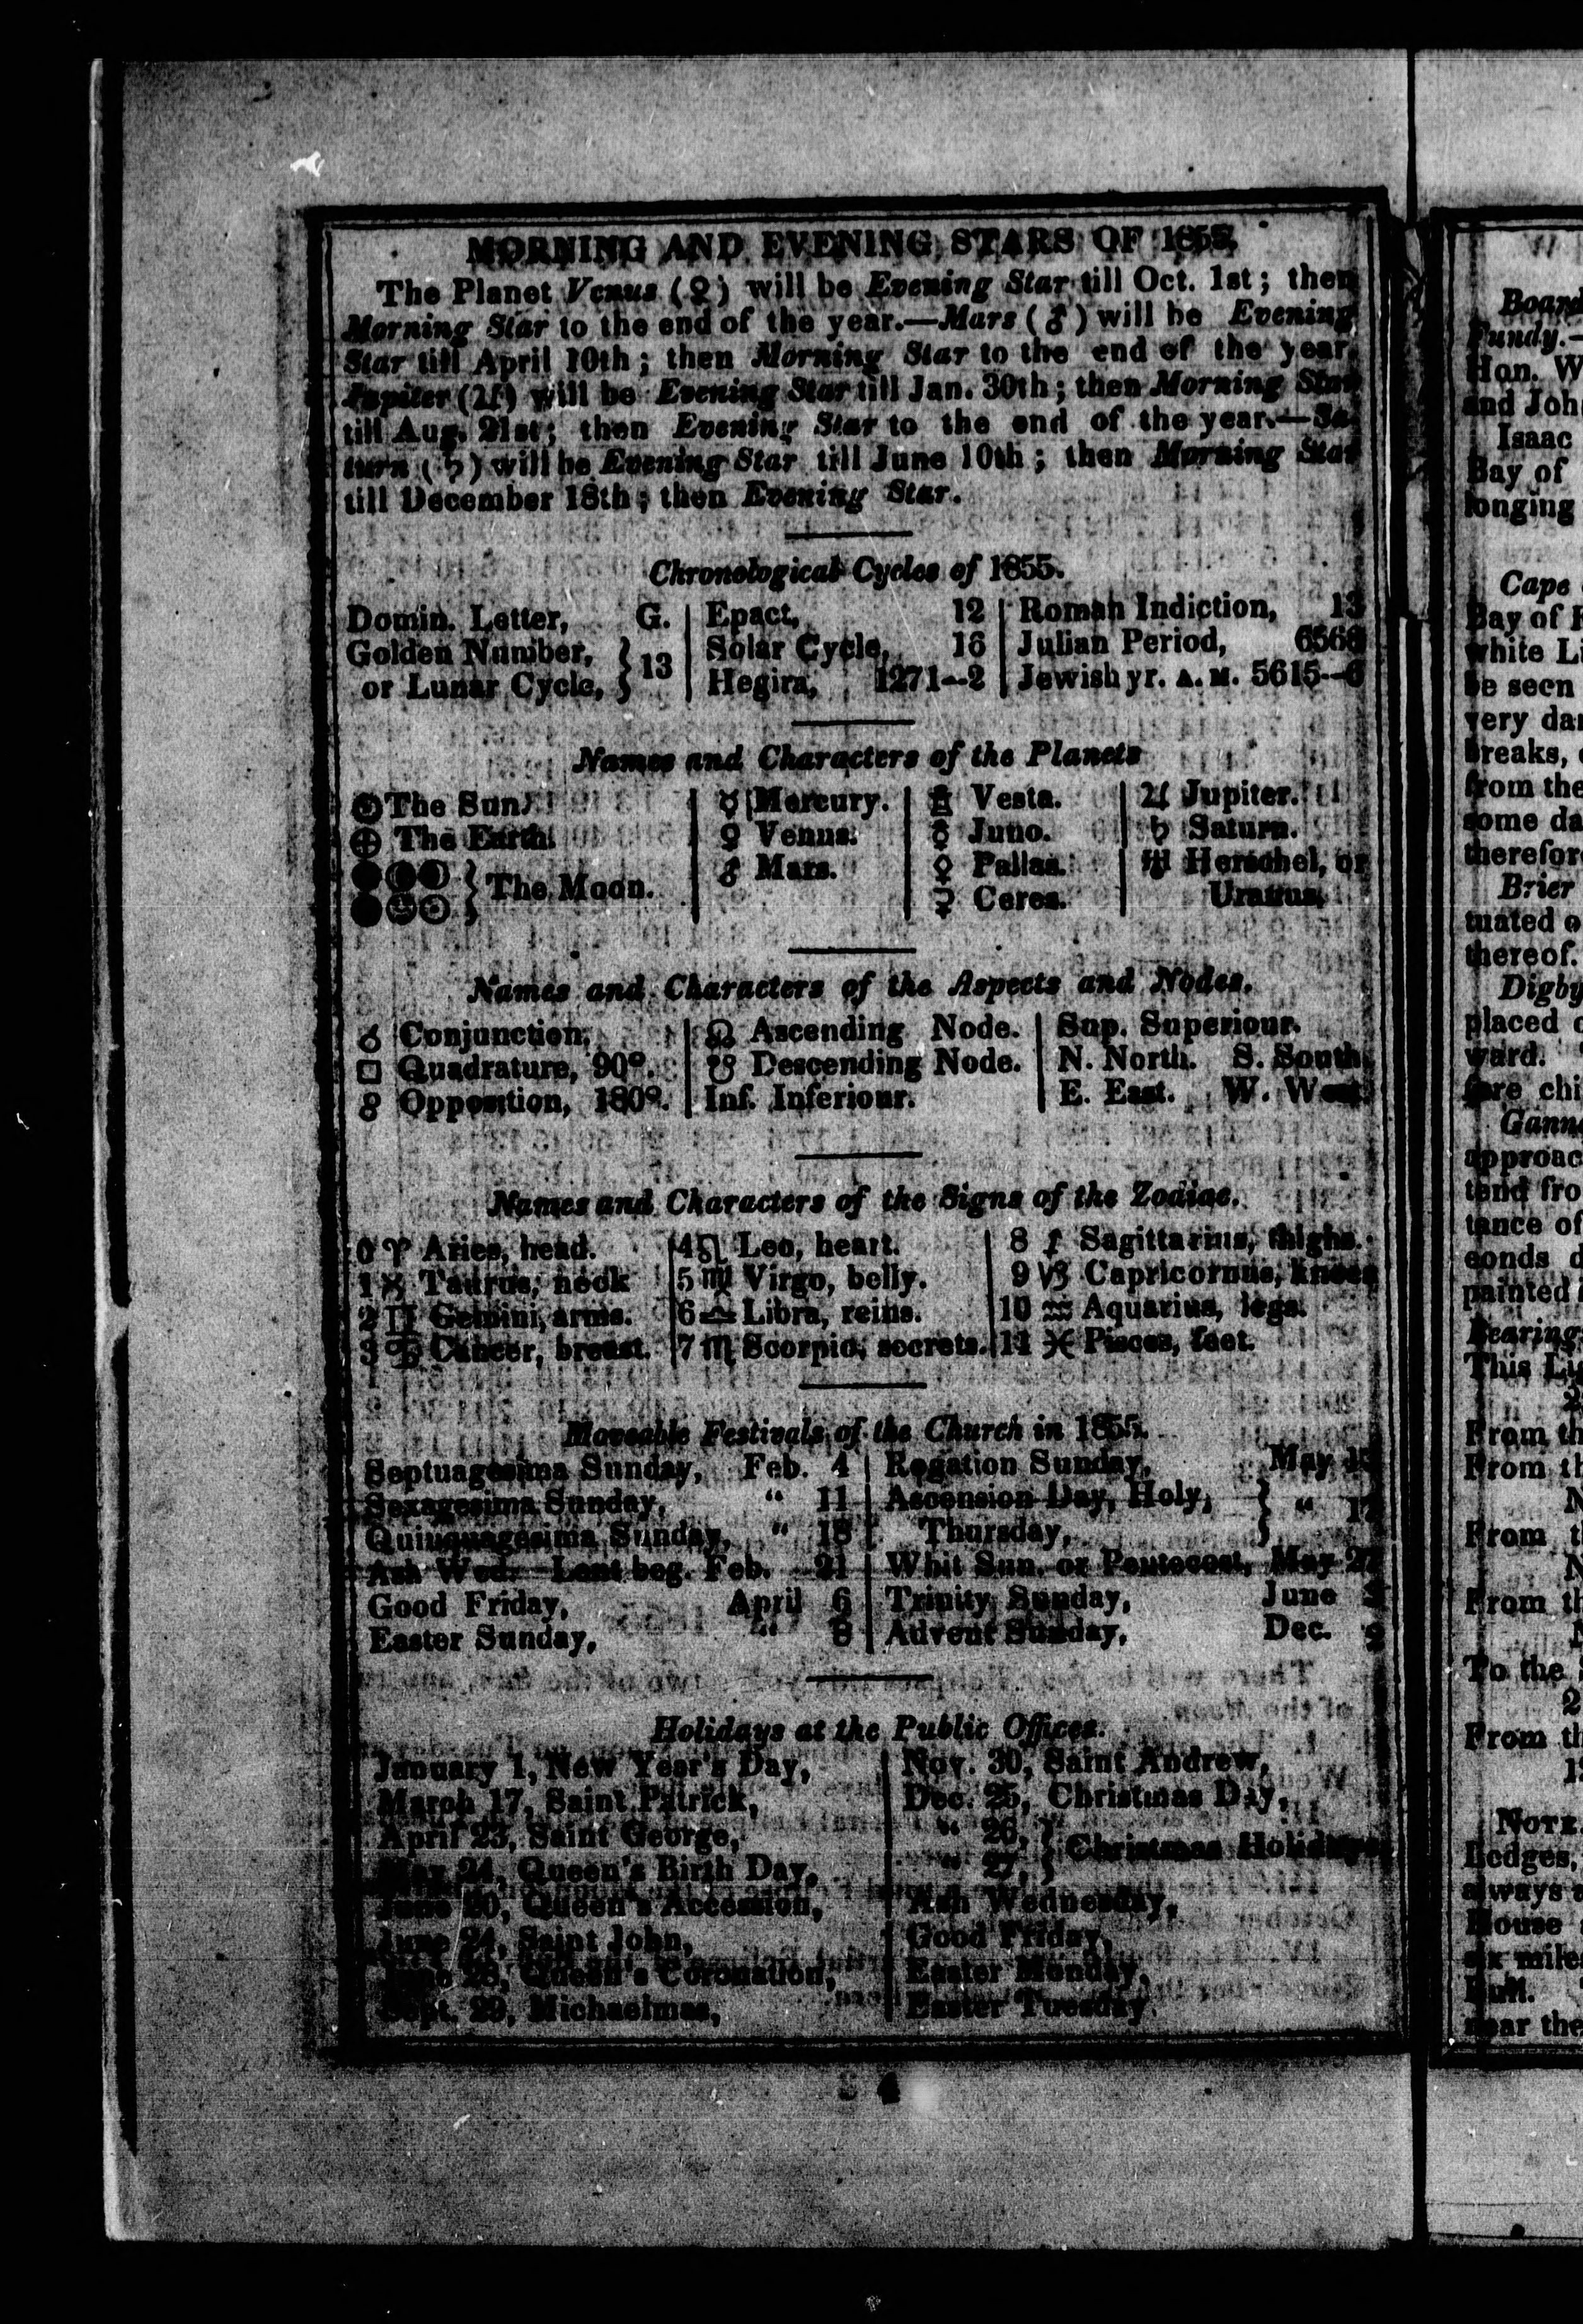 MORNING AND EVENING STARS OF 1855.
The Planet Venus (♀) will be Evening Star till Oct. 1st; then
Morning Star to the end of the year.—Mars (♂) will be Evening
Star till April 10th; then Morning Star to the end of the year.
Jupiter (♃) will be Evening Star till Jan. 30th; then Morning Star
till Aug. 21st; then Evening Star to the end of the year.—Sa-
turn (♄) will be Evening Star till June 10th; then Morning Star
till December 18th; then Evening Star.
Chronological Cycles of 1855.
Domin. Letter, G. | Epact, 12 | Roman Indiction, 13
Golden Number, } 13 | Solar Cycle, 16 | Julian Period, 6568
or Lunar Cycle, } | Hegira, 1271--2 | Jewish yr. A. M. 5615--6
Names and Characters of the Planets
☉ The Sun. | ☿ Mercury. | ⚶ Vesta. | ♃ Jupiter.
⊕ The Earth. | ♀ Venus. | ⚵ Juno. | ♄ Saturn.
The Moon. | ♂ Mars. | ⚴ Pallas. | ♅ Herschel, or
⚳ Ceres. | Uranus.
Names and Characters of the Aspects and Nodes.
☌ Conjunction, | ☊ Ascending Node. | Sup. Superiour.
□ Quadrature, 90°. | ☋ Descending Node. | N. North. S. South.
☍ Opposition, 180°. | Inf. Inferiour. | E. East. W. West.
Names and Characters of the Signs of the Zodiac.
0 ♈ Aries, head. | 4 ♌ Leo, heart. | 8 ♐ Sagittarius, thighs.
1 ♉ Taurus, neck | 5 ♍ Virgo, belly. | 9 ♑ Capricornus, knees
2 ♊ Gemini, arms. | 6 ♎ Libra, reins. | 10 ♒ Aquarius, legs.
3 ♋ Cancer, breast. | 7 ♏ Scorpio, secrets. | 11 ♓ Pisces, feet.
Moveable Festivals of the Church in 1855.
Septuagesima Sunday, Feb. 4 | Rogation Sunday, May 13
Sexagesima Sunday, “ 11 | Ascension Day, Holy, } “ 17
Quinquagesima Sunday, “ 18 | Thursday, }
Ash Wed. Lent beg. Feb. 21 | Whit Sun. or Pentecost, May 27
Good Friday, April 6 | Trinity Sunday, June 3
Easter Sunday, “ 8 | Advent Sunday, Dec. 2
Holidays at the Public Offices.
January 1, New Year's Day, | Nov. 30, Saint Andrew,
March 17, Saint Patrick, | Dec. 25, Christmas Day,
April 23, Saint George, | “ 26, } Christmas Holidays,
May 24, Queen's Birth Day, | “ 27, }
June 20, Queen's Accession, | Ash Wednesday,
June 24, Saint John, | Good Friday,
June 28, Queen's Coronation, | Easter Monday,
Sept. 29, Michaelmas, | Easter Tuesday.
Board
Fundy.—
Hon. W
and Joh
Isaac
Bay of
longing
Cape
Bay of
white Li
be seen
very da
breaks,
from the
some da
therefor
Brier
tuated o
thereof.
Digby
placed
ward.
fore chi
Gann
approac
tend fro
tance of
conds d
painted
Bearing
This Li
From th
From th
N
From t
N
From th
To the
2
From th
NOTE.
Ledges,
always a
House
six mile
near the